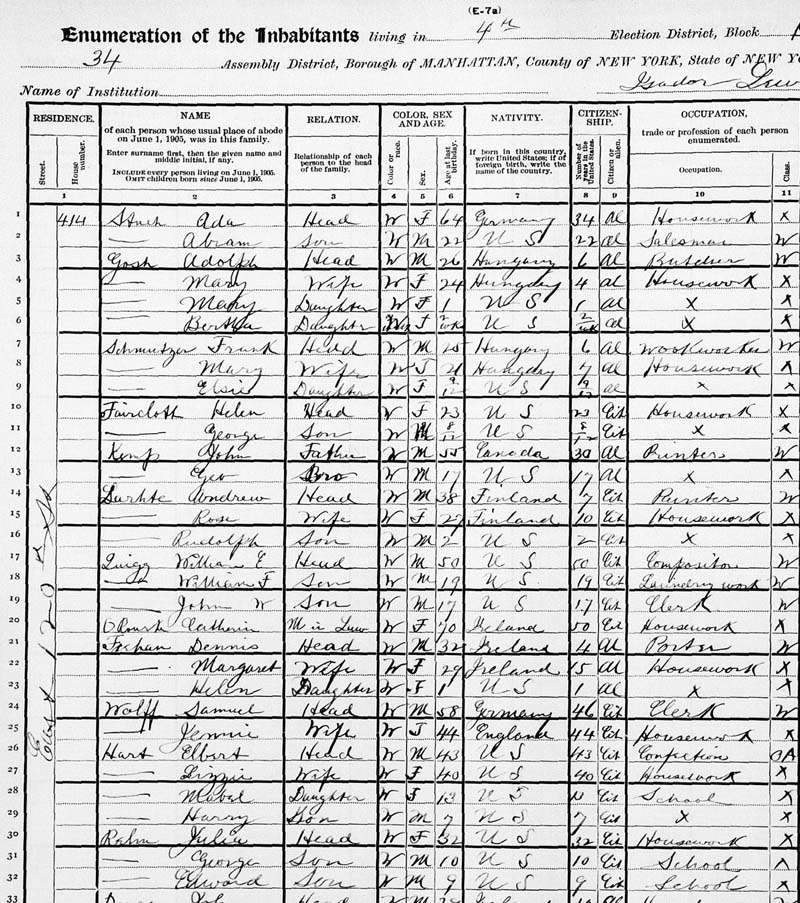 (E-7a)
Enumeration of the Inhabitants living in 4th Election District, Block
34 Assembly District, Borough of MANHATTAN, County of NEW YORK, State of NEW YO
Name of Institution Isador
RESIDENCE. NAME RELATION. COLOR, SEX AND AGE. NATIVITY. CITIZENSHIP. OCCUPATION,
of each person whose usual place of abode on June 1, 1905, was in this family.
Enter surname first, then the given name and middle initial, if any.
INCLUDE every person living on June 1, 1905.
OMIT children born since June 1, 1905.
Relationship of each person to the head of the family.
If born in this country, write United States; if of foreign birth, write the name of the country.
trade or profession of each person enumerated.
Street. House number. Color or race. Sex. Age at last birthday. Number of years in the United States. Citizen or alien. Occupation. Class.
1 2 3 4 5 6 7 8 9 10 11
East 120th St
1 414 Ada Head W F 64 Germany 34 Al Housework X
2 — Abram Son W M 22 U S 22 Al Salesman W
3 Gosh Adolph Head W M 26 Hungary 6 Al Butcher W
4 — Mary Wife W F 24 Hungary 4 Al Housework X
5 — Mary Daughter W F 1 U S 1 Al X X
6 — Bertha Daughter F 2/wk U S 2/wk al X X
7 Schmutzer Frank Head W M 25 Hungary 6 Al W
8 — Mary Wife W F 21 Hungary 7 Al Housework X
9 — Elsie Daughter W F 9/12 U S 9/12 al X X
10 Faircloth Helen Head W F 23 U S 23 Cit Housework X
11 — George Son W M 8/12 U S 8/12 Cit X X
12 Kemp John Father W M 55 Canada 30 Al Printer W
13 — Geo Bro W M 17 U S 17 Al X X
14 Andrew Head W M 38 Finland 7 Cit W
15 — Rose Wife W F 29 Finland 10 Cit Housework X
16 — Rudolph Son W M 2 U S 2 Cit X X
17 Quigg William E Head W M 50 U S 50 Cit Compositor W
18 — William F Son W M 19 U S 19 Cit Laundry work W
19 — John W Son W M 17 U S 17 Cit Clerk W
20 O'Rourk Catherin M in Law W F 70 Ireland 50 Cit Housework X
21 Dennis Head W M 32 Ireland 4 Al Porter W
22 — Margaret Wife W F 29 Ireland 15 Al Housework X
23 — Helen Daughter W F 1 U S 1 Al X X
24 Wolff Samuel Head W M 58 Germany 46 Cit Clerk W
25 — Jennie Wife W F 44 England 44 Cit Housework X
26 Hart Elbert Head W M 43 U S 43 Cit Confection OA
27 — Lizzie Wife W F 40 U S 40 Cit Housework X
28 — Mabel Daughter W F 13 U S 13 Cit School X
29 — Harry Son W M 7 U S 7 Cit X X
30 Rahm Julia Head W F 32 U S 32 Cit Housework X
31 — George Son W M 10 U S 10 Cit School X
32 — Edward Son W M 9 U S 9 Cit School X
33